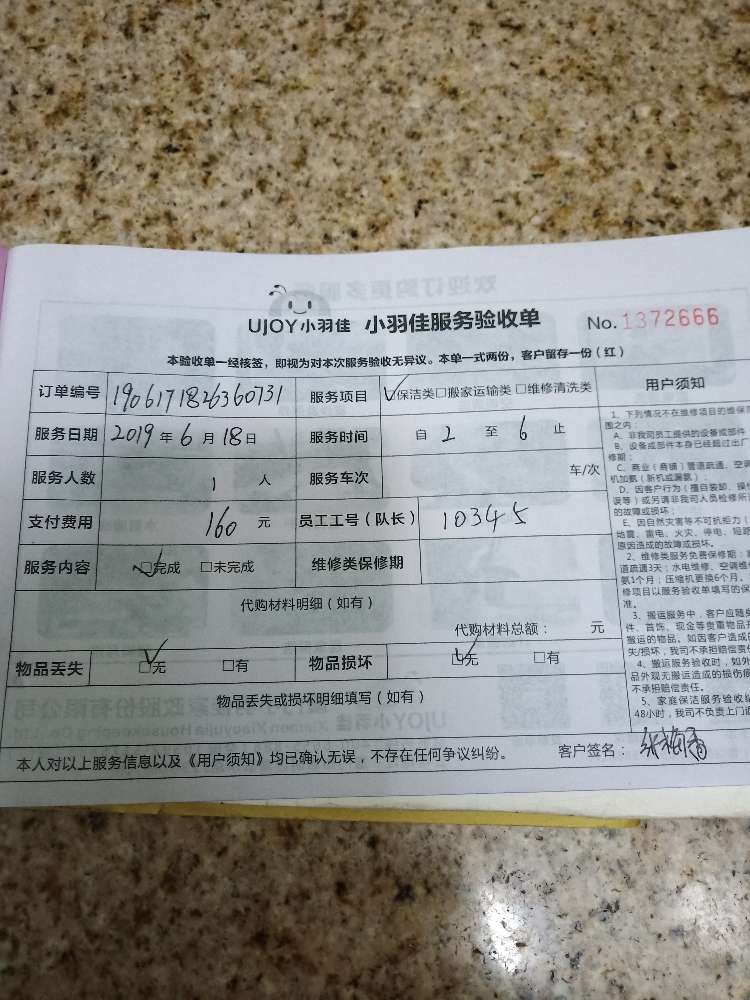 UJOY小羽佳 小羽佳服务验收单 No.1372666
本验收单一经核签，即视为对本次服务验收无异议。本单一式两份，客户留存一份（红）
订单编号 1906171826360731 服务项目 保洁类□搬家运输类□维修清洗类 用户须知
服务日期 2019年6月18日 服务时间 自 2 至 6 止
服务人数 1 人 服务车次 车/次
支付费用 160 元 员工工号（队长） 10345
服务内容 □完成 □未完成 维修类保修期
代购材料明细（如有）
代购材料总额： 元
物品丢失 □无 □有 物品损坏 □无 □有
物品丢失或损坏明细填写（如有）
本人对以上服务信息以及《用户须知》均已确认无误，不存在任何争议纠纷。 客户签名：
1、下列情况不在维修项目的维保范
围之内：
A、非我司员工提供的设备或部件
B、设备或部件本身已经超过出厂
修期；
C、商业（商铺）管道疏通、空调
机加氨（新机或漏氨）
D、因客户行为（擅自装卸、操作
误等）或另请非我司人员检修所
的故障或损坏；
E、因自然灾害等不可抗拒力（
地震、雷电、火灾、停电、短路
原因造成的故障或损坏。
2、维修类服务免费保修期：
道疏通3天；水电维修、空调维
氨1个月；压缩机更换6个月。
修项目以服务验收单填写的保
准。
3、搬运服务中，客户应随身
件、首饰、现金等贵重物品
搬运的物品。如因客户造成
失/损坏，我司不承担赔偿责
4、搬运服务验收时，如外
品外观无搬运造成的损伤痕
不承担赔偿责任。
5、家庭保洁服务验收
48小时，我司不负责上门